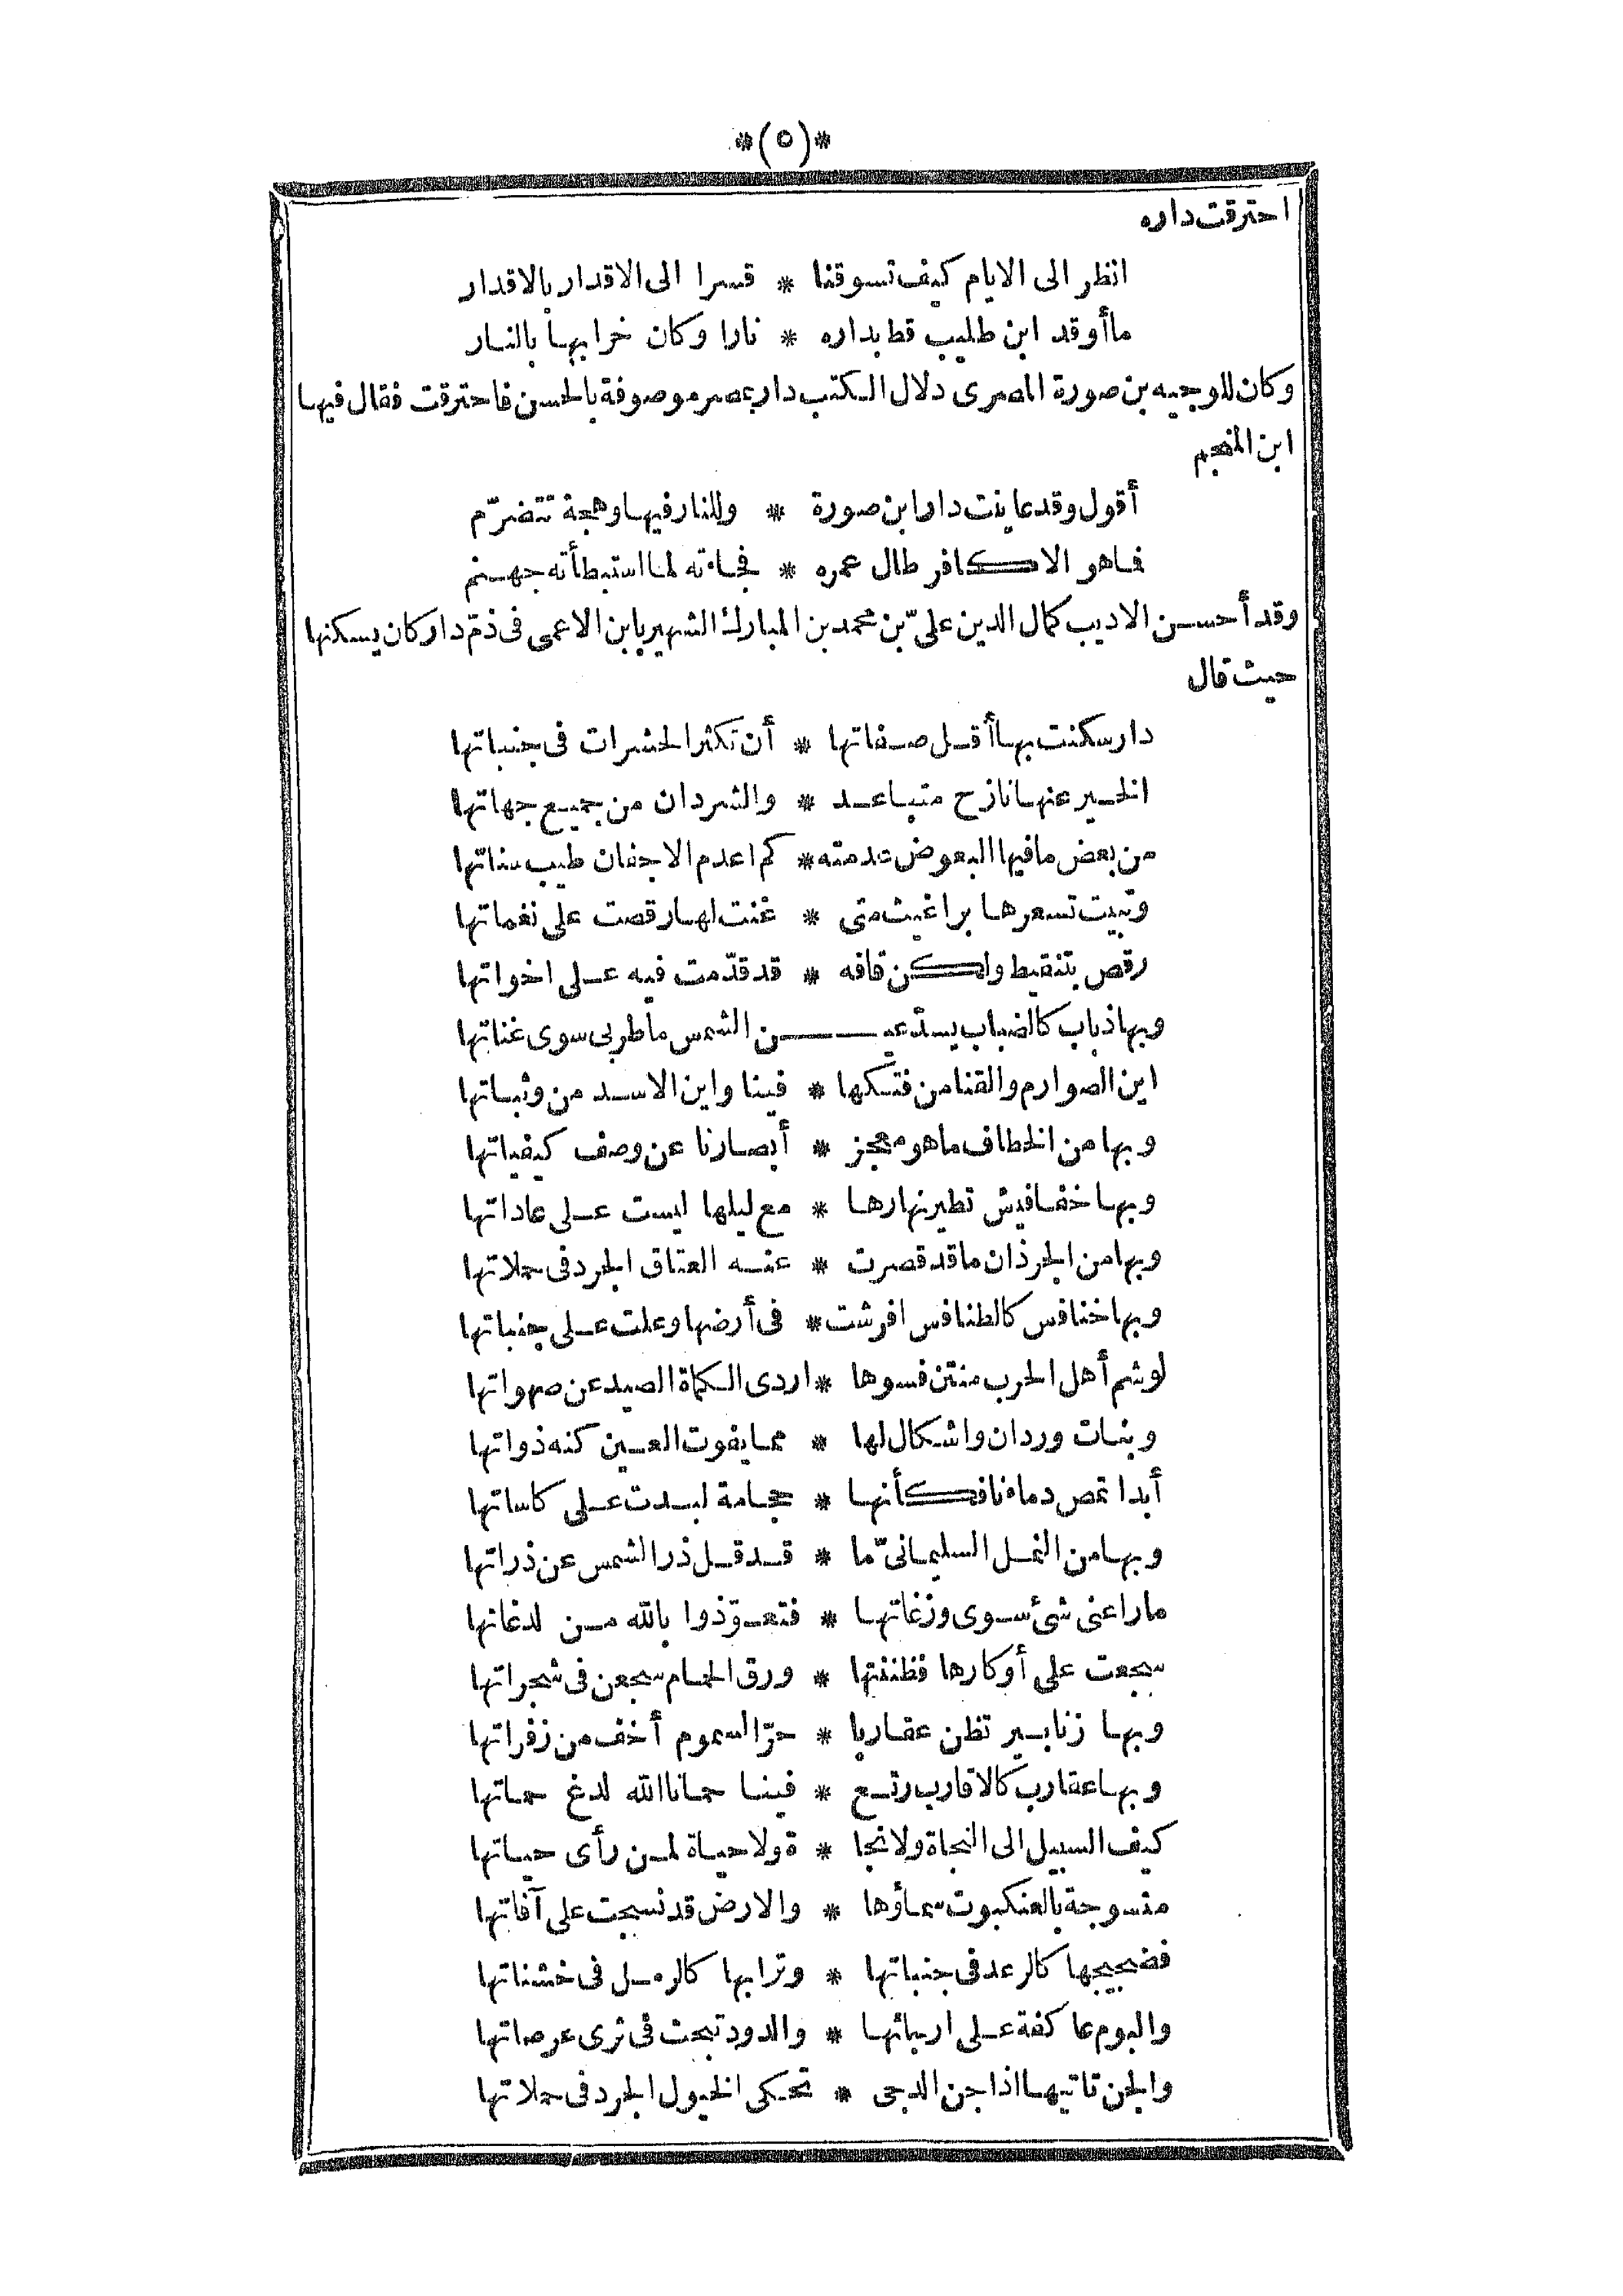 *(٥)*
احترقت داره
انظر الى الايام كيف تسوقنا * قسرا الى الاقدار بالاقدار
ما أوقد ابن طليب قط بداره * نارا وكان خرابها بالنار
وكان للوجيه بن صورة المصرى دلال الكتب دار بمصر موصوفة بالحسن فاحترقت فقال فيها
ابن المنجم
أقول وقد عاينت دار ابن صورة * وللنار فيها وهجة تتضرّم
فما هو الا كافر طال عمره * فجاءته لما استبطأته جهنم
وقد أحسن الاديب كمال الدين علىّ بن محمد بن المبارك الشهير بابن الاعمى فى ذمّ دار كان يسكنها
حيث قال
دار سكنت بها أقل صفاتها * أن تكثر الحشرات فى جنباتها
الخير عنها نازح متباعد * والشر دان من جميع جهاتها
من بعض ما فيها البعوض عدمته * كم اعدم الاجفان طيب سناتها
وتبيت تسعرها براغيث متى * غنت لها رقصت على نغماتها
رقص بتنقيط ولكن قافه * قد قدّمت فيه على اخواتها
وبها ذباب كالضباب يسدّ عين الشمس ما طربى سوى غناتها
اين الصوارم والقنا من فتكها * فينا واين الاسد من وثباتها
وبها من الخطاف ما هو معجز * أبصارنا عن وصف كيفياتها
وبها خفافيش تطير نهارها * مع ليلها ليست على عاداتها
وبها من الجرذان ما قد قصرت * عنه العتاق الجرد فى حملاتها
وبها خنافس كالطنافس افرشت * فى أرضها وعلت على جنباتها
لو شم أهل الحرب منتن فسوها * اردى الكماة الصيد عن صهواتها
وبنات وردان واشكال لها * مما يفوت العين كنه ذواتها
أبدا تمص دماءنا فكأنها * حجامة لبدت على كاساتها
وبها من النمل السليمانىّ ما * قد قل ذر الشمس عن ذراتها
ما راعنى شئ سوى وزغاتها * فتعوّذوا بالله من لدغاتها
سجعت على أوكارها فظننتها * ورق الحمام سجعن فى شجراتها
وبها زنابير تظن عقاربا * حرّ السموم أخف من زفراتها
وبها عقارب كالاقارب رتع * فينا حمانا الله لدغ حماتها
كيف السبيل الى النجاة ولا نجا * ة ولا حياة لمن رأى حياتها
منسوجة بالعنكبوت سماؤها * والارض قد نسجت على آفاتها
فضجيجها كالرعد فى جنباتها * وترابها كالرمل فى خشناتها
والبوم عاكفة على اربائها * والدود تبحث فى ثرى عرصاتها
والجن تاتيها اذا جن الدجى * تحكى الخيول الجرد فى حملاتها